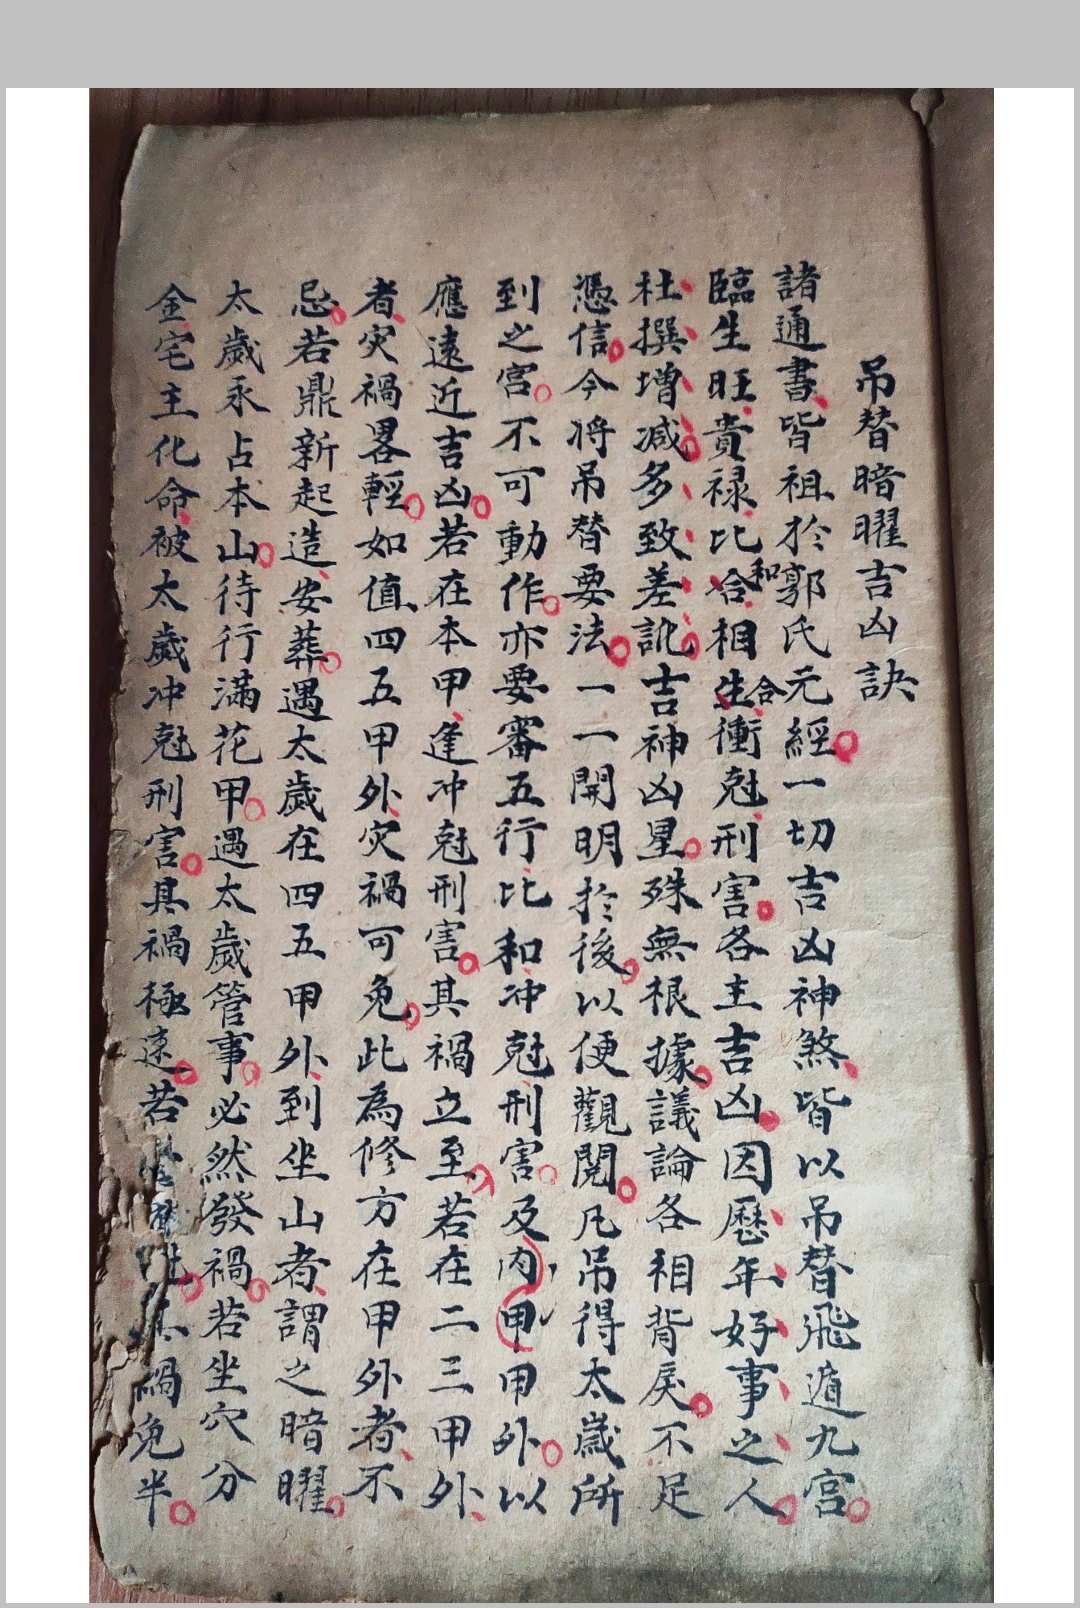 吊替暗曜吉凶訣
諸通書皆祖於郭氏元經一切吉凶神煞皆以吊替飛遁九宮
臨生旺貴祿比合和相生合衝尅刑害各主吉凶因歷年好事之人
杜撰增減多致差訛吉神凶星殊無根據議論各相背戾不足
憑信今將吊替要法一一開明於後以便觀閱凡吊得太歲所
到之宮不可動作亦要審五行比和冲尅刑害及內甲甲外以
應遠近吉凶若在本甲逢冲尅刑害其禍立至若在二三甲外
者灾禍畧輕如值四五甲外灾禍可免此為修方在甲外者不
忌若鼎新起造安葬遇太歲在四五甲外到坐山者謂之暗曜
太歲永占本山待行滿花甲遇太歲管事必然發禍若坐穴分
金宅主化命被太歲冲尅刑害其禍極速若禍免半